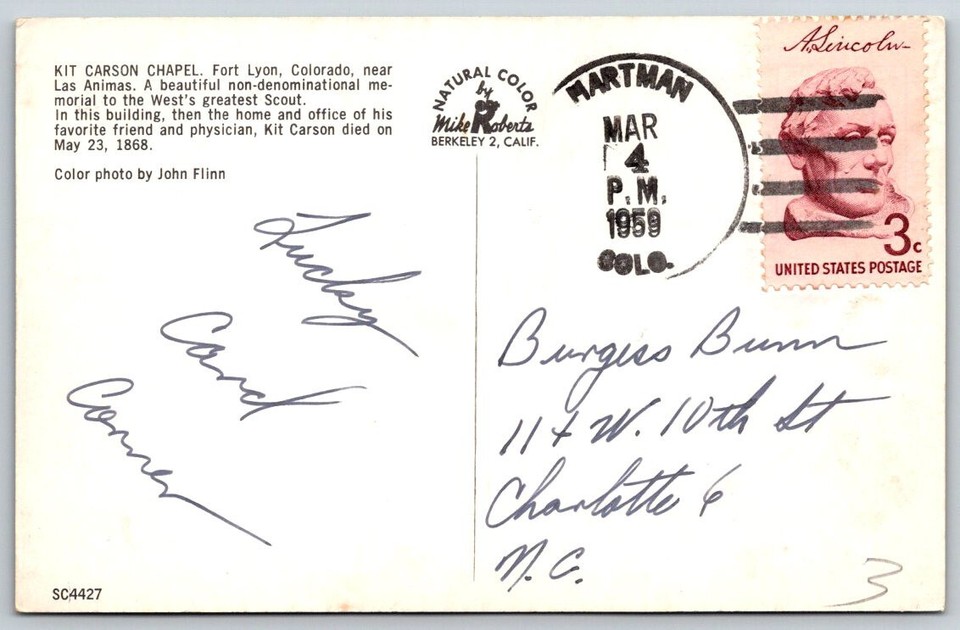 KIT CARSON CHAPEL. Fort Lyon, Colorado, near
Las Animas. A beautiful non-denominational me-
morial to the West's greatest Scout.
In this building, then the home and office of his
favorite friend and physician, Kit Carson died on
May 23, 1868.
Color photo by John Flinn
NATURAL COLOR
by
Mike Roberts
BERKELEY 2, CALIF.
HARTMAN
MAR
4
P.M.
1959
COLO.
A. Lincoln
3c
UNITED STATES POSTAGE
Lucky
Card
Corner
Burgess Bunn
W. 10th St
Charlotte 6
N.C.
3
SC4427